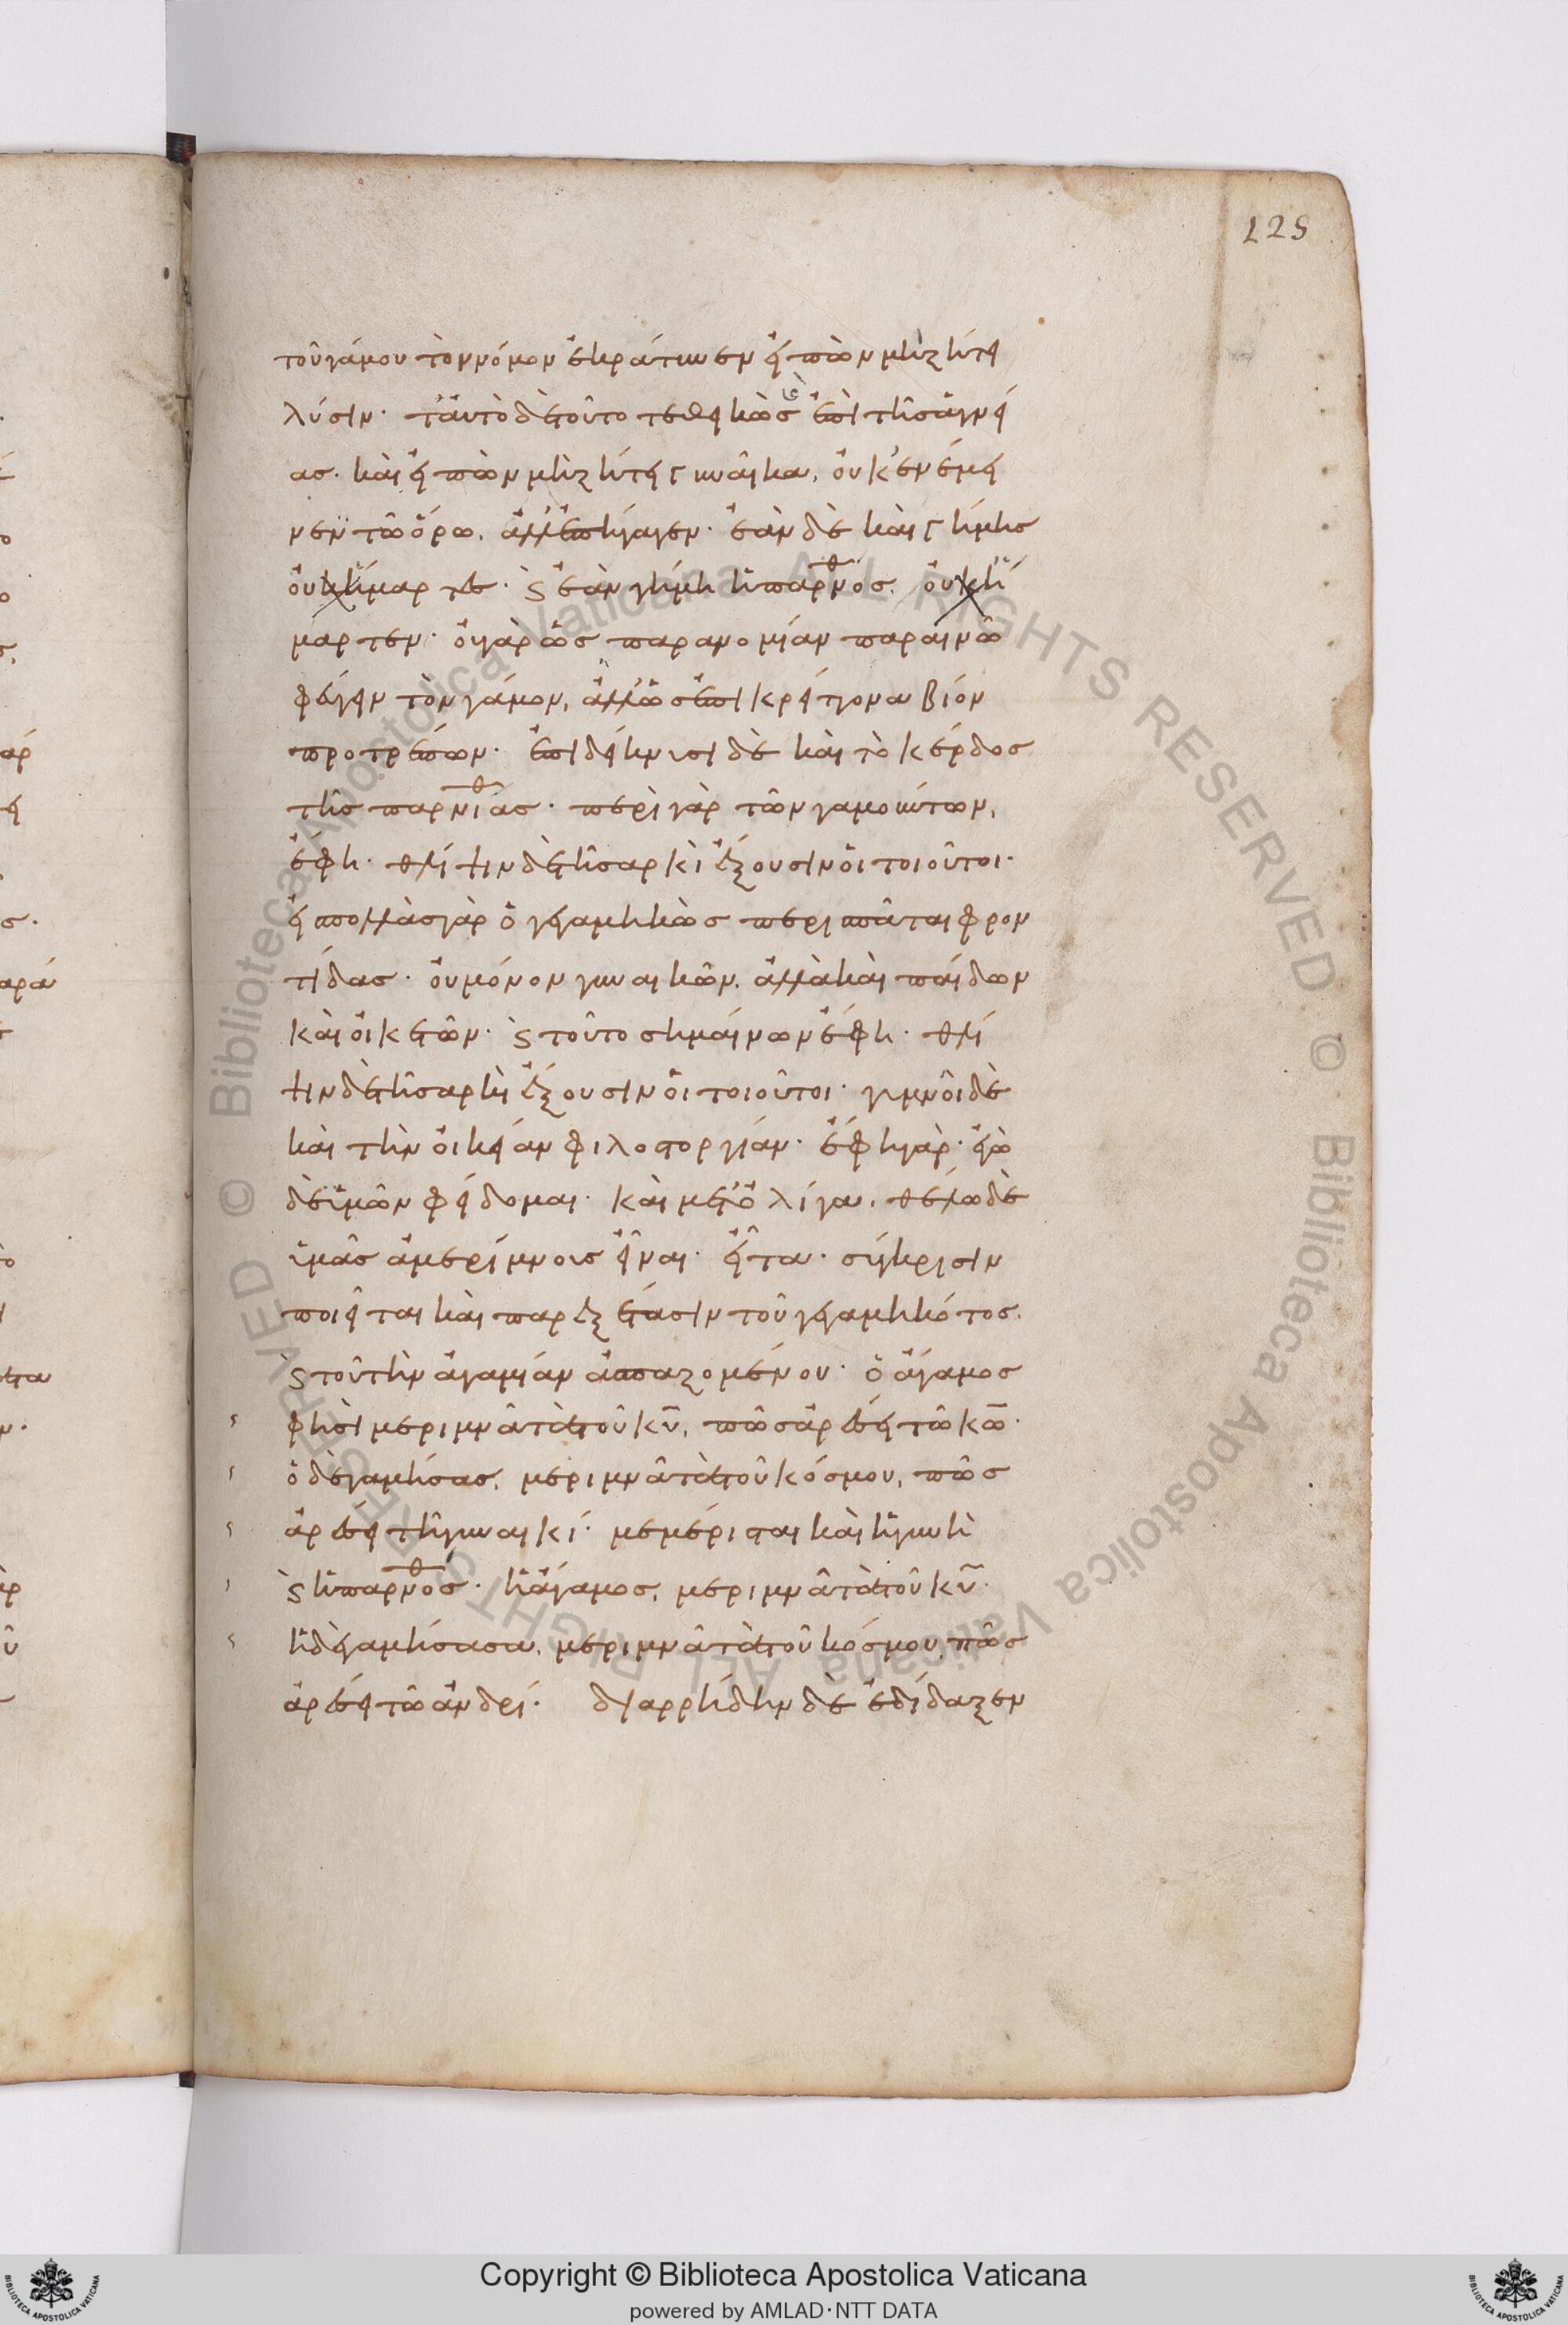 125
τοῦ γάμου τὸν νόμον ἐκράτυνεν εἰπὼν μὴ ζήτει
λύσιν· ταὐτὸ δὲ τοῦτο τεθεικὼς ἐπὶ τῆς ἁγνεί
ας· καὶ εἰπὼν μὴ ζήτει γυναῖκα, οὐκ ἐνέμει
νεν τῶ ὅρω, ἀλλ' ἐπήγαγεν· ἐὰν δὲ καὶ γήμης
οὐχ ἥμαρτες· καὶ ἐὰν γήμη ἡ παρθνος, οὐχ ἥ
μαρτεν· οὐ γὰρ ὡς παρανομίαν παραινῶ
φεύγειν τὸν γάμον, ἀλλ' ὡς ἐπὶ κρείττονα βίον
προτρέπων· ἐπιδείκνυσι δὲ καὶ τὸ κέρδος
τῆς παρθνίας· περὶ γὰρ τῶν γαμούντων,
ἔφη· θλίψιν δὲ τῆ σαρκὶ ἕξουσιν οἱ τοιοῦτοι·
εἰς πολλὰς γὰρ ὁ γεγαμηκὼς περισπᾶται φρον
τίδας· οὐ μόνον γυναικῶν, ἀλλὰ καὶ παίδων
καὶ οἰκετῶν· καὶ τοῦτο σημαίνων ἔφη· θλί
ψιν δὲ τῆ σαρκὶ ἕξουσιν οἱ τοιοῦτοι· γυμνοῖ δὲ
καὶ τὴν οἰκείαν φιλοστοργίαν· ἔφη γὰρ· ἐγὼ
δὲ ὑμῶν φείδομαι· καὶ μετ' ὀλίγα, θέλω δὲ
ὑμᾶς ἀμερίμνους εἶναι· εἶτα· σύγκρισιν
ποιεῖται καὶ παρεξέτασιν τοῦ γεγαμηκότος,
καὶ τοῦ τὴν ἀγαμίαν ἀσπαζομένου· ὁ ἄγαμος
φησὶ μεριμνᾶ τὰ τοῦ κυ, πῶς ἀρέσει τῶ κω·
ὁ δὲ γαμήσας, μεριμνᾶ τὰ τοῦ κόσμου, πῶς
ἀρέσει τῆ γυναικί· μεμέρισται καὶ ἡ γυνὴ
καὶ ἡ παρθνος· ἡ ἄγαμος, μεριμνᾶ τὰ τοῦ κυ·
ἡ δὲ γαμήσασα, μεριμνᾶ τὰ τοῦ κόσμου, πῶς
ἀρέσει τῶ ἀνδρί· διαρρήδην δὲ ἐδίδαξεν
Copyright © Biblioteca Apostolica Vaticana
powered by AMLAD·NTT DATA